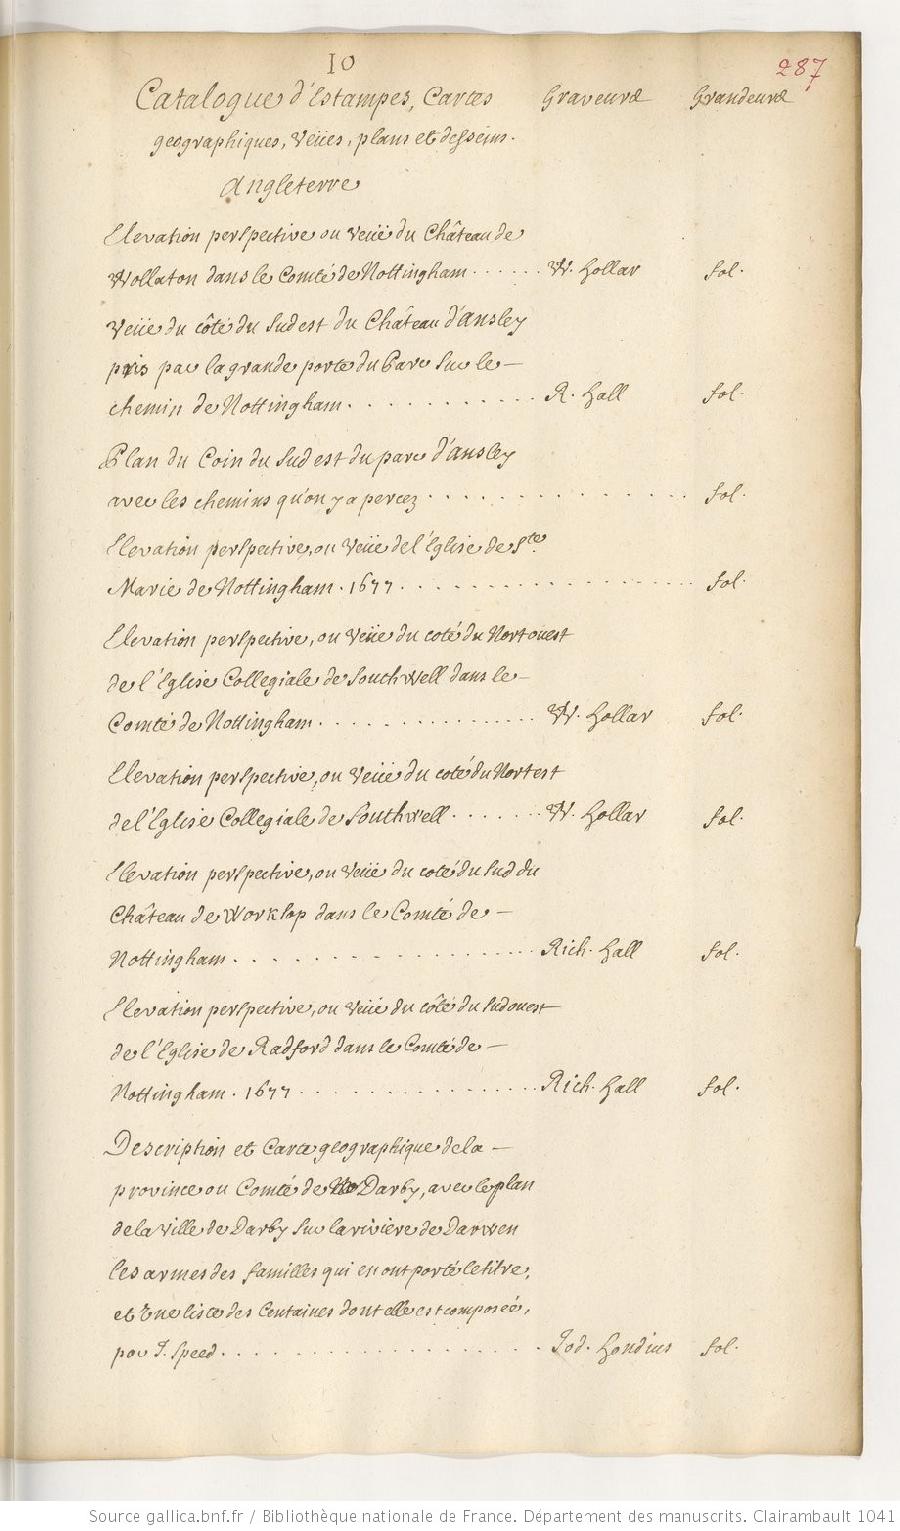 10
287
Catalogue d'Estampes, Cartes Graveurs Grandeurs
geographiques, Veües, plans et desseins.
Angleterre
Elevation perspective ou Veüe du Château de
Wollaton dans le Comté de Nottingham . . . . . . W. Hollar fol.
Veüe du côté du Sud est du Château d'ansley
pris par la grande porte du Parc sur le —
chemin de Nottingham . . . . . . . . . . . R. Hall fol.
Plan du Coin du Sud est du parc d'ansley
avec les chemins qu'on y a percez . . . . . . . . . . . . . . . fol.
Elevation perspective, ou Veüe de l'Eglise de Ste.
Marie de Nottingham . 1677 . . . . . . . . . . . . . . . . . fol.
Elevation perspective, ou Veüe du coté du Nort ouest
de l'Eglise Collegiale de Southwell dans le —
Comté de Nottingham . . . . . . . . . . . . . . W. Hollar fol.
Elevation perspective, ou Veüe du coté du Nort est
de l'Eglise Collegiale de Southwell . . . . . . . W. Hollar fol.
Elevation perspective, ou Veüe du coté du Sud du
Château de Worksop dans le Comté de —
Nottingham . . . . . . . . . . . . . . . . . . Rich. Hall fol.
Elevation perspective, ou Veüe du côté du Sud ouest
de l'Eglise de Radford dans le Comté de —
Nottingham . 1677 . . . . . . . . . . . . . . Rich. Hall fol.
Description et Carte geographique de la —
province ou Comté de Darby, avec le plan
de la Ville de Darby sur la riviere de Darwen
les armes des familles qui en ont porté le titre,
et Une liste des Centaines dont elle est composée,
par J. Speed . . . . . . . . . . . . . . . . . . . Jod. Hondius fol.
Source gallica.bnf.fr / Bibliothèque nationale de France. Département des manuscrits. Clairambault 1041